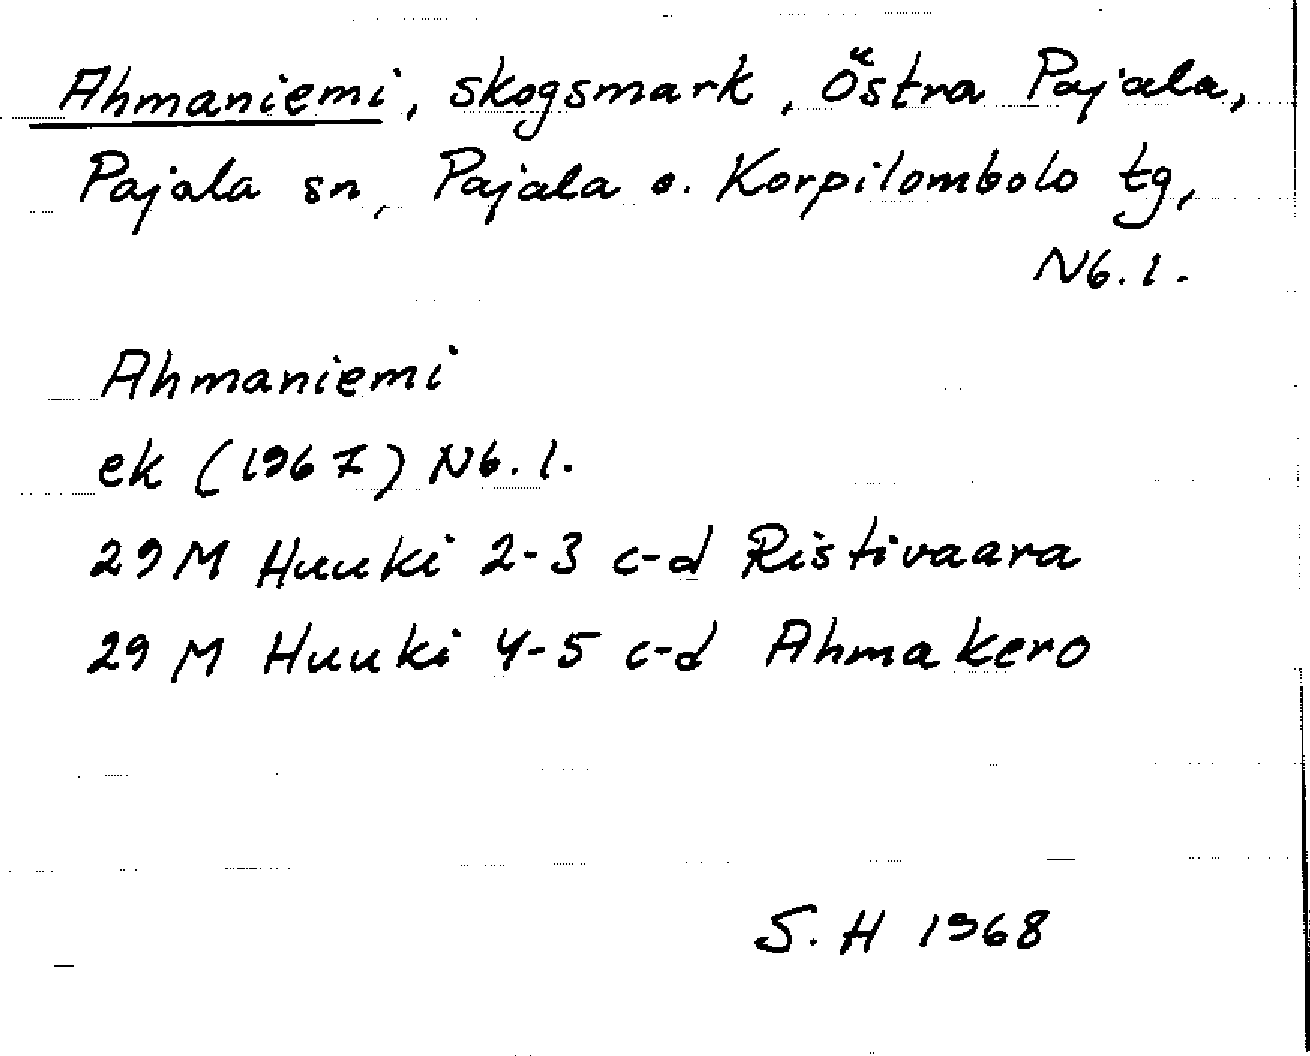 Ahmaniemi, skogsmark, Östra Pajala,
Pajala sn, Pajala o. Korpilombolo tg,
Nb. l.
Ahmaniemi
ek (1967) Nb. l.
29 M Huuki 2-3 c-d Ristivaara
29 M Huuki 4-5 c-d Ahmakero
S. H 1968